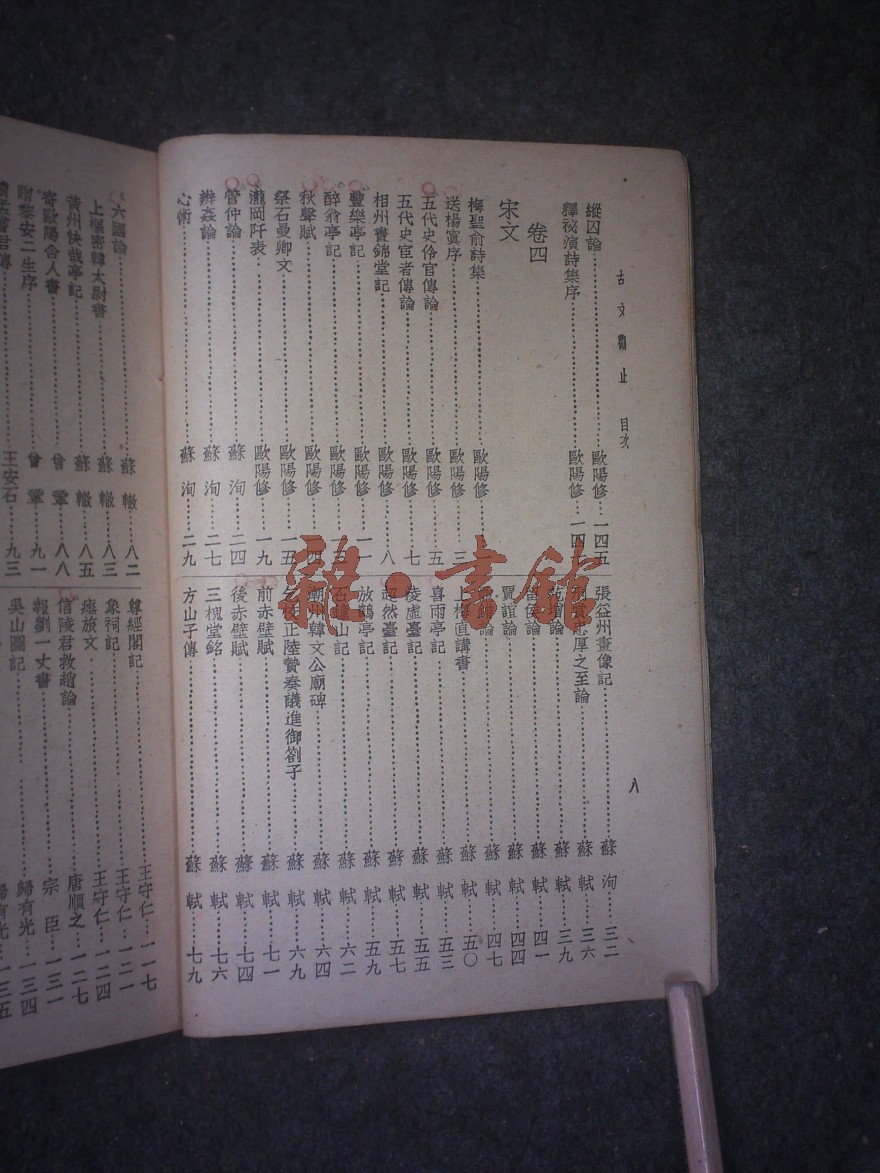 古文觀止 目次 八
縱囚論……歐陽修…一四五
釋祕演詩集序……歐陽修…一四七
卷四
宋文
梅聖俞詩集……歐陽修
送楊寘序……歐陽修…三
五代史伶官傳論……歐陽修…五
五代史宦者傳論……歐陽修…七
相州晝錦堂記……歐陽修…八
豐樂亭記……歐陽修…一一
醉翁亭記……歐陽修
秋聲賦……歐陽修…四
祭石曼卿文……歐陽修…一五
瀧岡阡表……歐陽修…一九
管仲論……蘇洵…二四
辨姦論……蘇洵…二七
心術……蘇洵…二九
張益州畫像記……蘇洵…三二
刑賞忠厚之至論……蘇軾…三六
增論……蘇軾…三九
留侯論……蘇軾…四一
賈誼論……蘇軾…四四
錯論……蘇軾…四七
上梅直講書……蘇軾…五〇
喜雨亭記……蘇軾…五三
凌虛臺記……蘇軾…五五
超然臺記……蘇軾…五七
放鶴亭記……蘇軾…五九
石鐘山記……蘇軾…六二
潮州韓文公廟碑……蘇軾…六四
乞校正陸贄奏議進御劄子……蘇軾…六九
前赤壁賦……蘇軾…七一
後赤壁賦……蘇軾…七四
三槐堂銘……蘇軾…七六
方山子傳……蘇軾…七九
六國論……蘇轍…八二
上樞密韓太尉書……蘇轍…八三
黃州快哉亭記……蘇轍…八五
寄歐陽舍人書……曾鞏…八八
贈黎安二生序……曾鞏…九一
讀孟嘗君傳……王安石…九三
尊經閣記……王守仁…一一七
象祠記……王守仁…一二一
瘞旅文……王守仁…一二四
信陵君救趙論……唐順之…一二七
報劉一丈書……宗臣…一三一
吳山圖記……歸有光…一三四
歸有光…一三五
書館